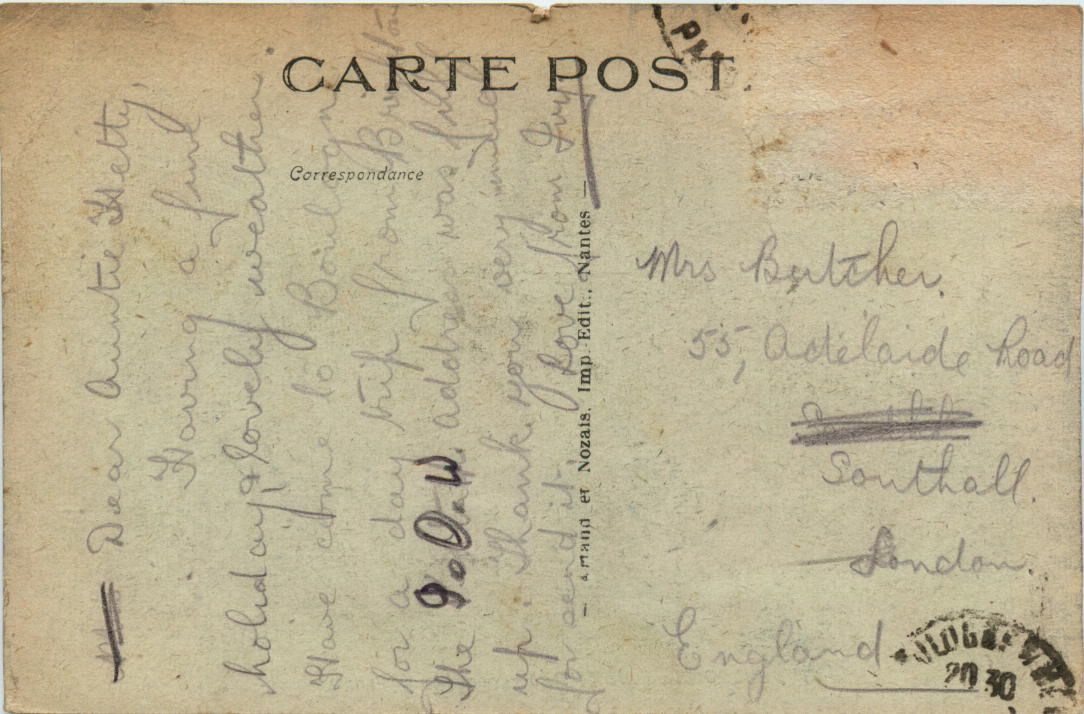 CARTE POST
Correspondance
Dear Auntie Hetty,
Having a fine
holiday & lovely weather.
Have come to Boulogne
for a day trip from
The address was
up. Thank you very
for send it.
Love from Ivy
et Nozais. Imp.-Edit., Nantes —
Mrs Butcher.
55, Adelaide Road
Southall.
London.
England
20 30